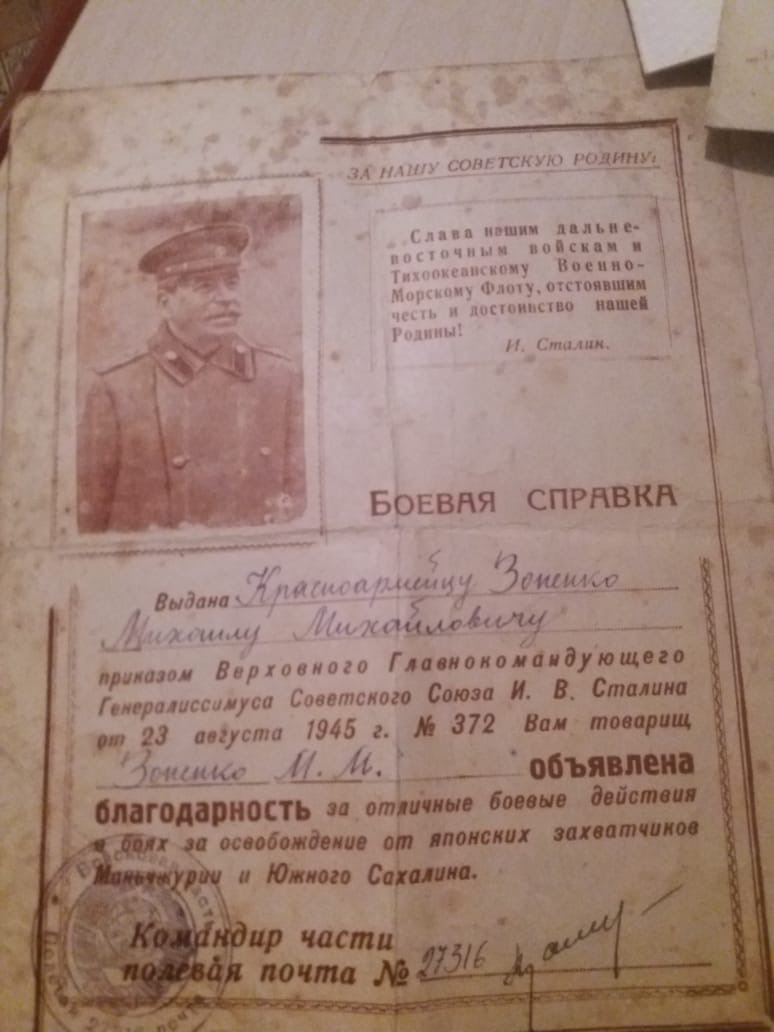 ЗА НАШУ СОВЕТСКУЮ РОДИНУ!
Слава нашим дальне-
восточным войскам и
Тихоокеанскому Военно-
Морскому Флоту, отстоявшим
честь и достоинство нашей
Родины!
И. Сталин.
БОЕВАЯ СПРАВКА
Выдана Красноармейцу Зоненко
Михаилу Михайловичу
приказом Верховного Главнокомандующего
Генералиссимуса Советского Союза И. В. Сталина
от 23 августа 1945 г. № 372 Вам товарищ
Зоненко М. М. объявлена
благодарность за отличные боевые действия
в боях за освобождение от японских захватчиков
Маньчжурии и Южного Сахалина.
Командир части
полевая почта № 27316
Войсковая часть
почта